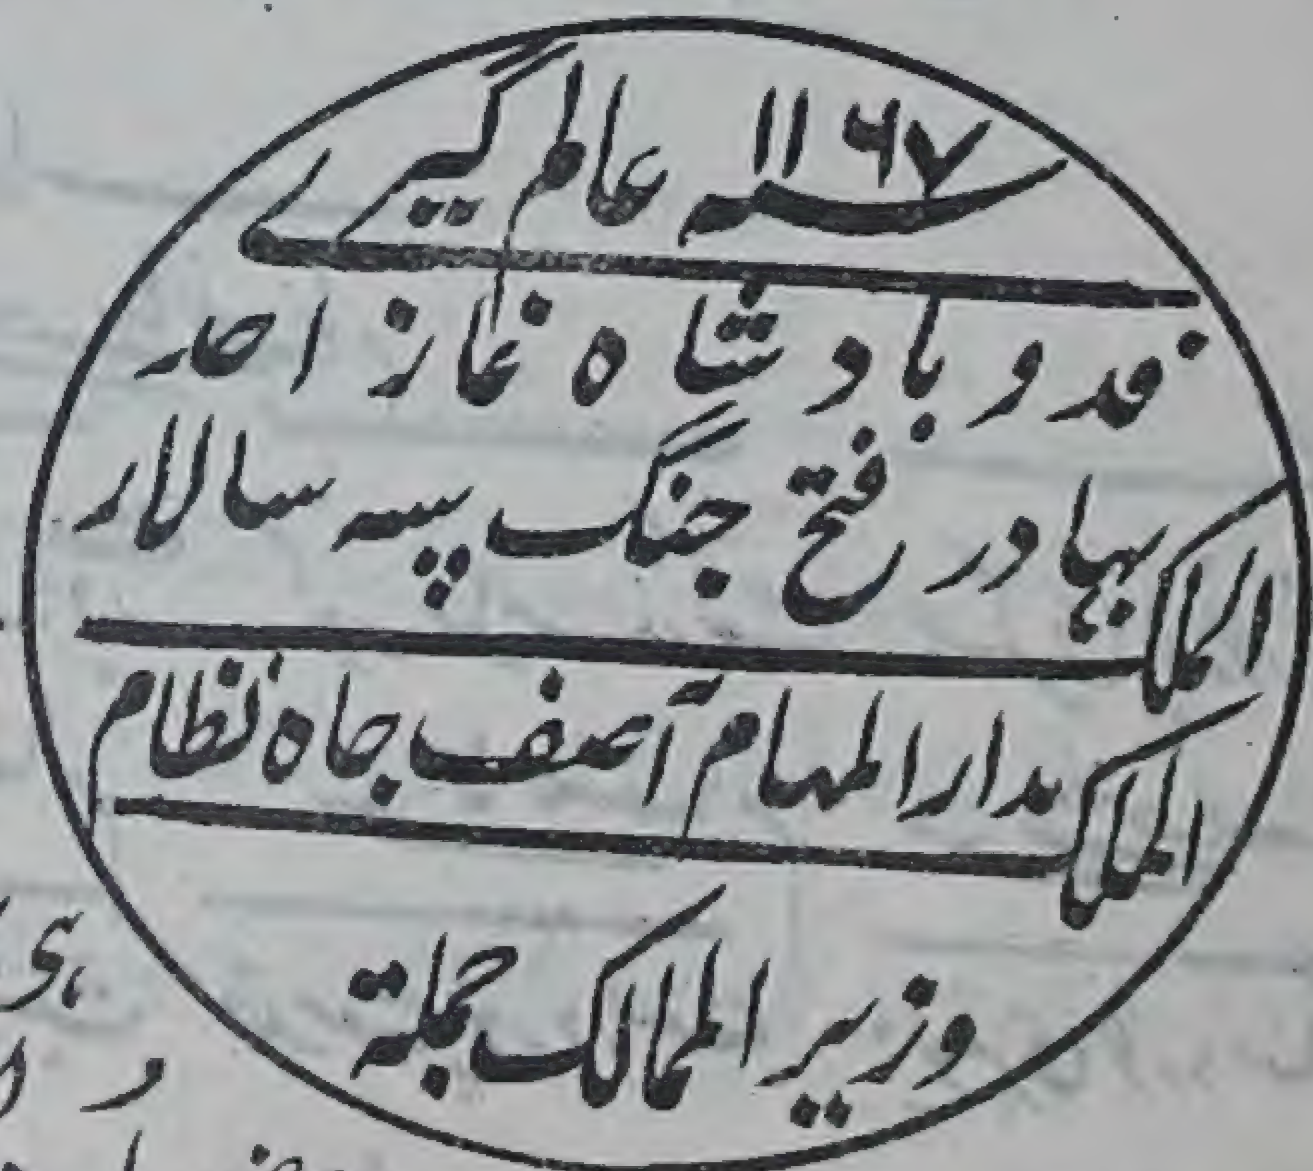 سنہ ۱۱۶۷ عالم گیرے
فدو بادشاہ غاز احد
بہادر فتح جنگ سپہ سالار
الملک
مدار المہام آصف جاہ نظام
الملک
وزیر الممالک جملۃ